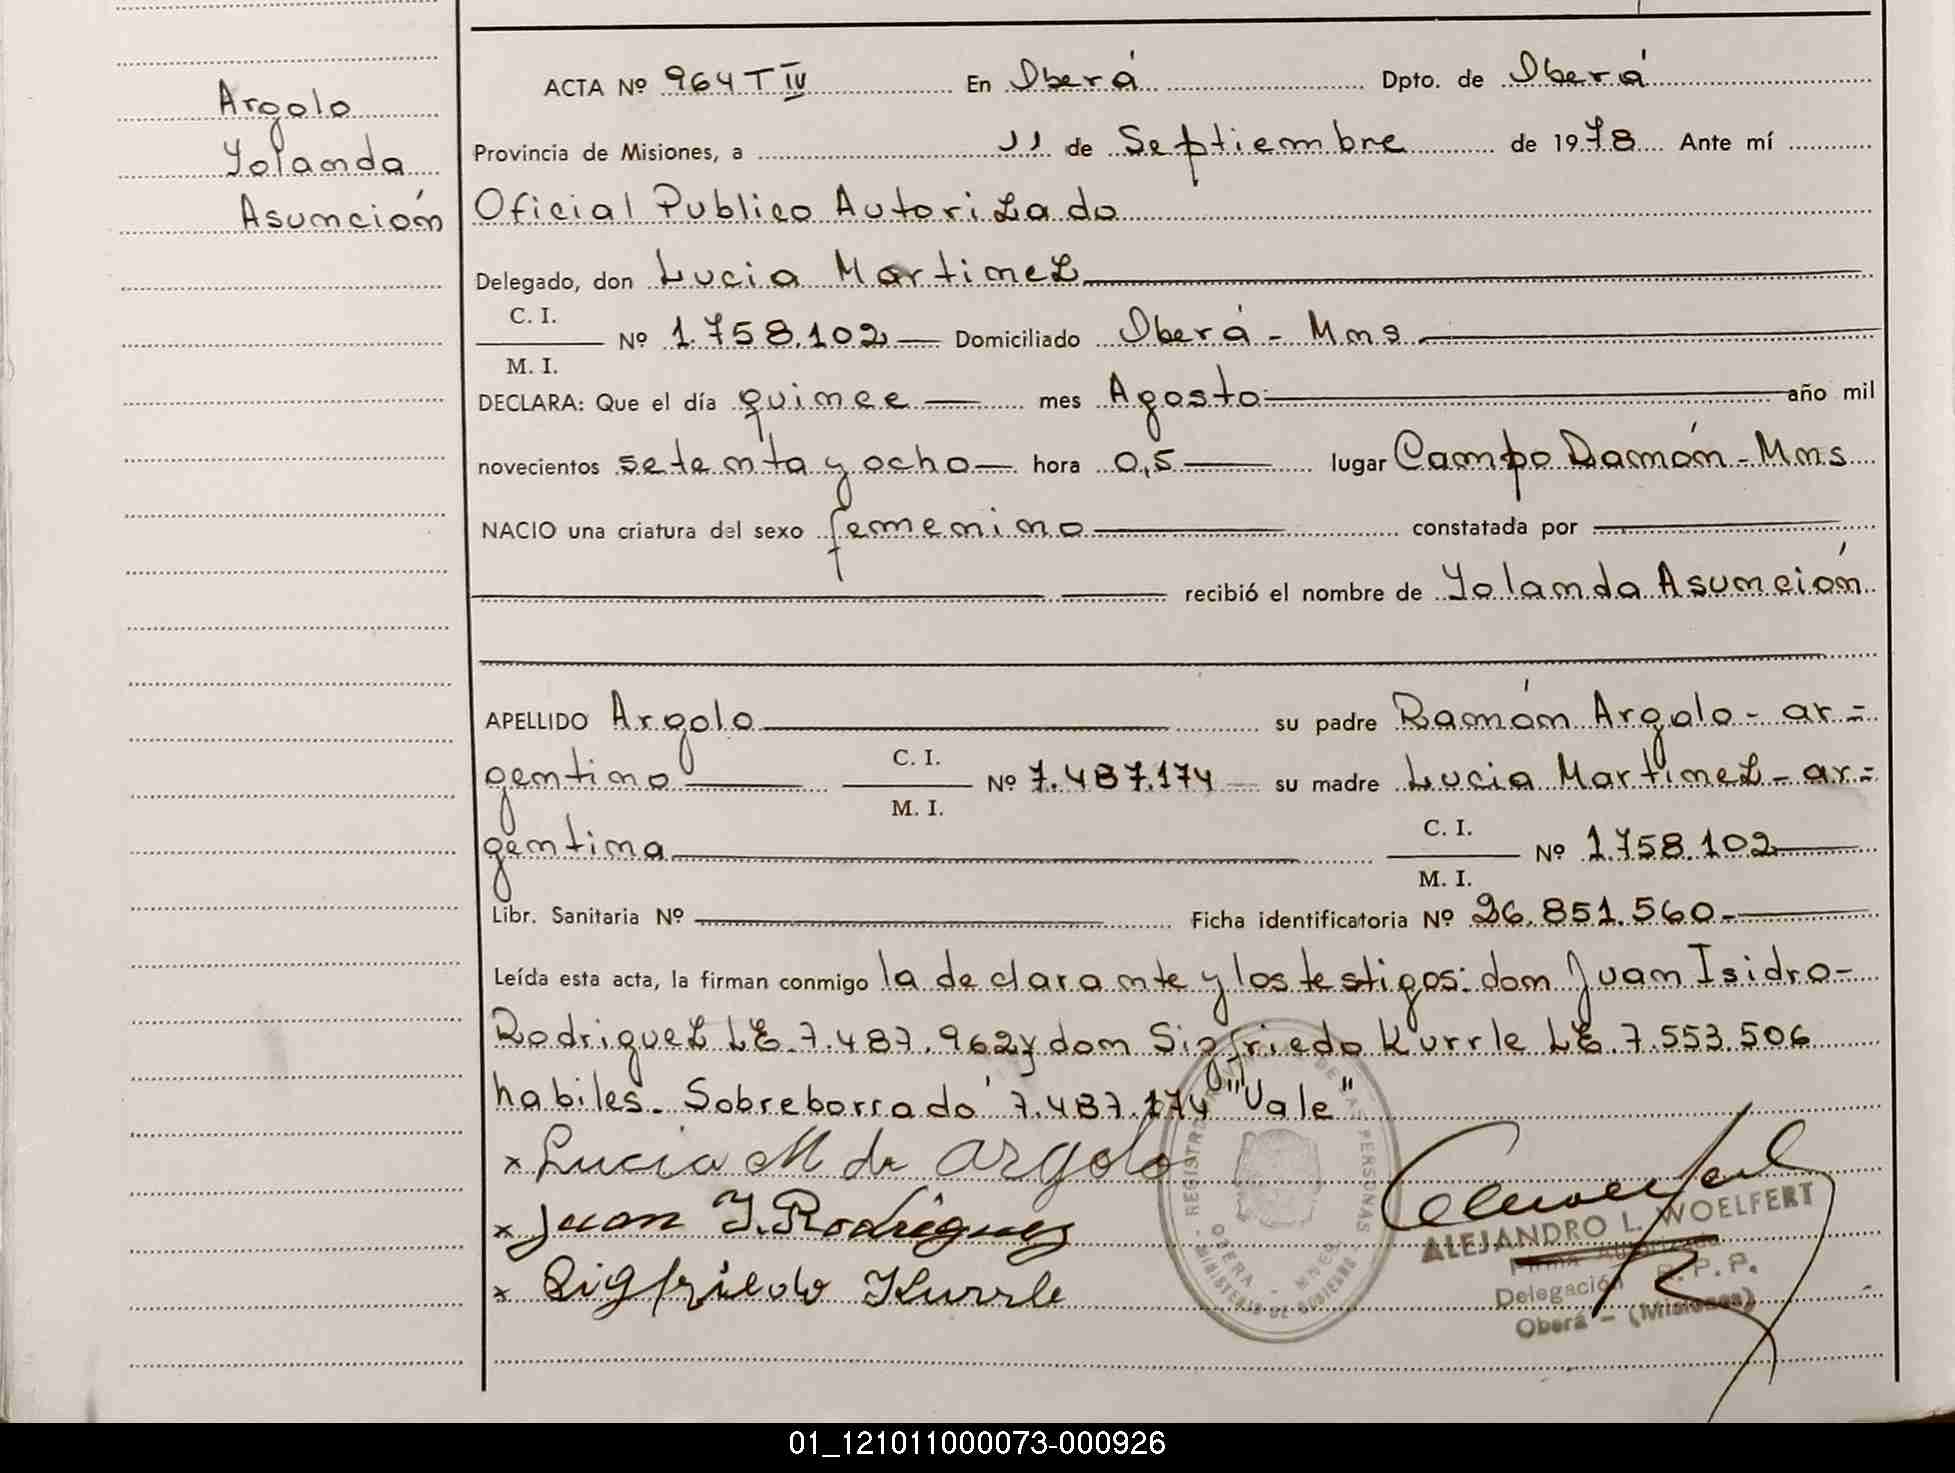 Argolo
Yolanda
Asunción
ACTA Nº 964 T IV En Oberá Dpto. de Oberá
Provincia de Misiones, a 11 de Septiembre de 1978 Ante mí
Oficial Publico Autorizado
Delegado, don Lucia Martinez
C. I.
M. I.
Nº 1.758.102 Domiciliado Oberá - Mns
DECLARA: Que el día quince mes Agosto año mil
novecientos setenta y ocho hora 0,5 lugar Campo Ramón - Mns
NACIO una criatura del sexo femenino constatada por
recibió el nombre de Yolanda Asunción
APELLIDO Argolo su padre Ramón Argolo - ar=
gentino C. I. M. I. Nº 7.487.174 su madre Lucia Martinez - ar=
gentina C. I. M. I. Nº 1.758.102
Libr. Sanitaria Nº Ficha identificatoria Nº 26.851.560-
Leída esta acta, la firman conmigo la declarante y los testigos: don Juan Isidro-
Rodriguez LE. 7.487.962 y don Sigfriedo Kurrle LE. 7.553.506
habiles. Sobreborrado 7.487.174 "Vale"
x Lucia M de Argolo
x Juan I. Rodriguez
x Sigfriedo Kurrle
REGISTRO DE LAS PERSONAS
OBERA - MNES
MINISTERIO DE GOBIERNO
ALEJANDRO L. WOELFERT
Firma Autorizada
Delegación R.P.P.
Oberá - (Misiones)
01_121011000073-000926